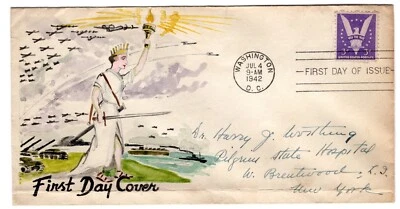 WASHINGTON
JUL 4
9-AM
1942
D. C.
FIRST DAY OF ISSUE
Dr. Harry J. Worthing
Pilgrims State Hospital
W. Brentwood, L.I.
New York.
First Day Cover